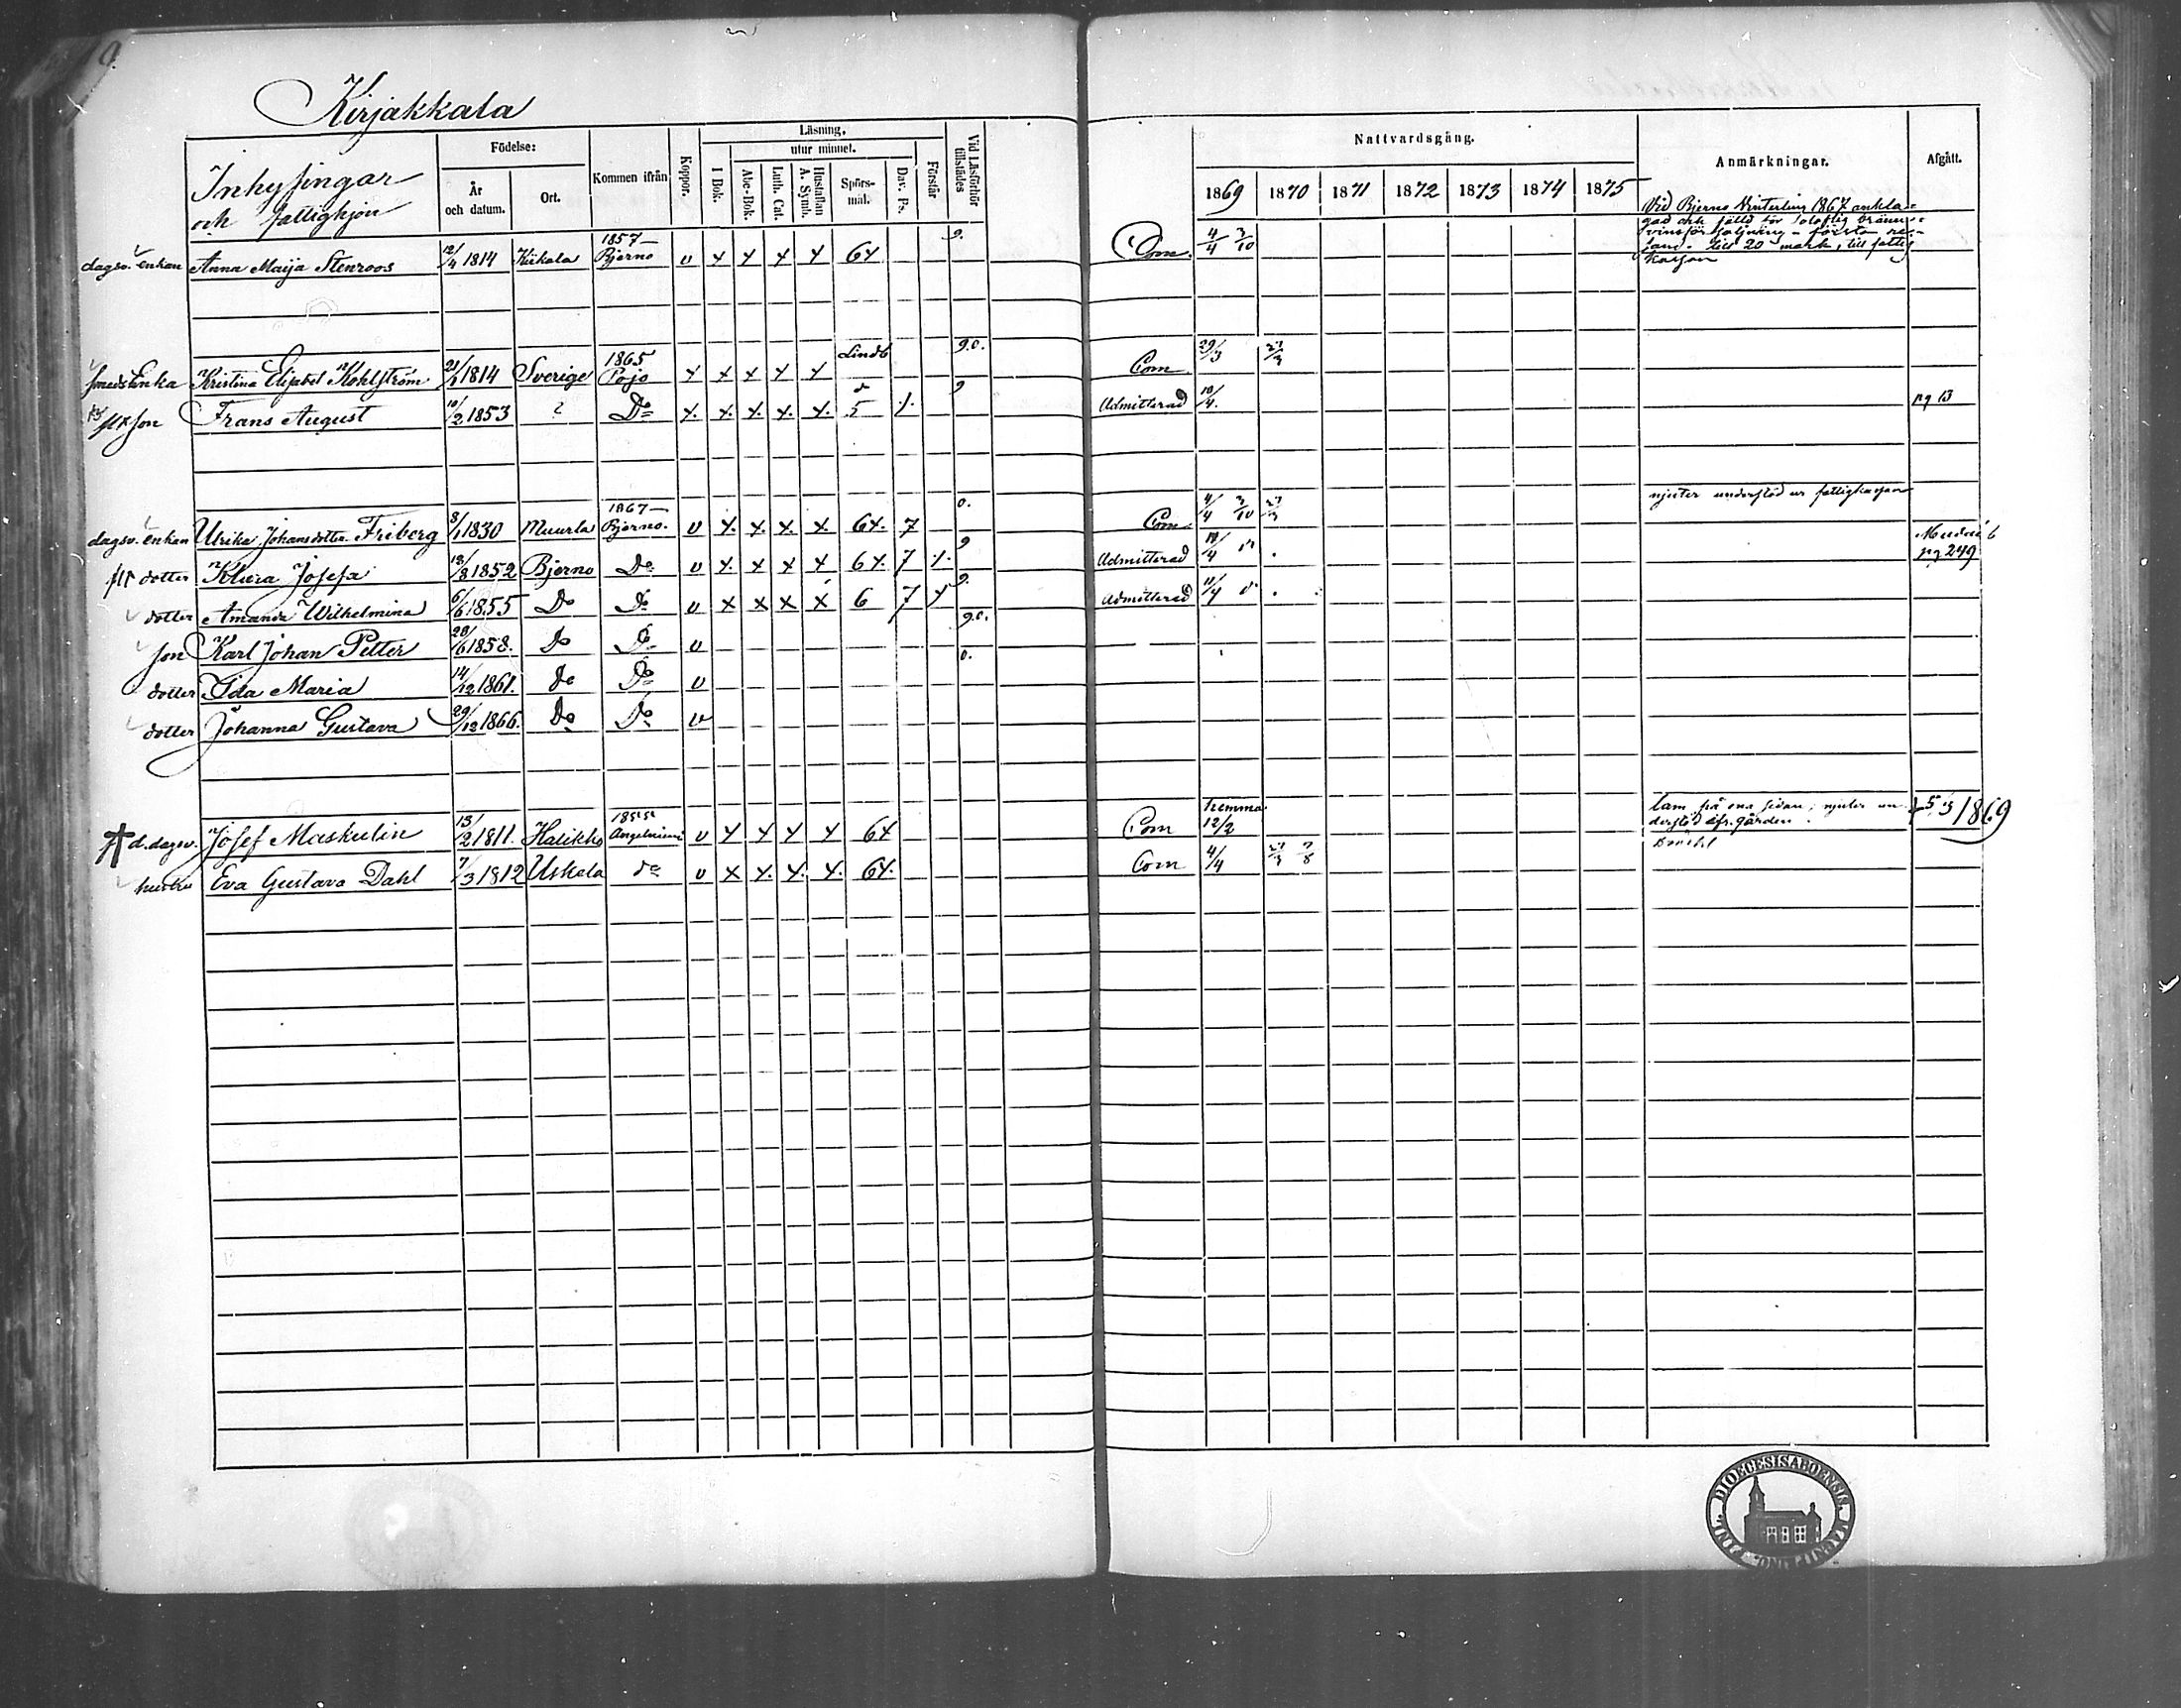 Kirjakkala
Inhysingar och fattighjon
Födelse:
År och datum.
Ort.
Kommen ifrån
Koppor.
Läsning.
I Bok.
utur minnet.
Abc-Bok.
Luth. Cat.
Hustaflan A. Symb.
Spörs-mål.
Dav. Ps.
Förstår
Vid Läsförhör tillstädes
Nattvardsgång.
1869 1870 1871 1872 1873 1874 1875
Anmärkningar.
Afgått.
dagsv. enkan Anna Maija Stenroos 12/4 1814 Kiikala 1857 Bjerno v x x x x 6x 9. Com. 4/4 3/10 Vid Bjerno Vinterting 1867 ankla-
gad och fälld för olaflig bränn-
vinsförsäljning - första re-
till 20 mark, till fattig
kassan
smedsenka Kristina Elisabet Kohlström 21/1 1814 Sverige 1865 Pojo x x x x x Lindb 9.0. Com 29/3
son Frans August 10/2 1853 Do x. x. x. x. x. 5 9 Admitterad 10/4. pg 13
dagsv. enkan Ulrika Johansdotter Friberg 8/1 1830 Muurla 1867 Bjerno. v x. x. x. x. 6x. 7 0. Com 4/4 3/10 njuter understöd ur fattigkassan
dotter Klara Josefa 12/8 1852 Bjerno Do v x. x x x 6x. 7 9 Admitterad 10/4 pg 249
dotter Amanda Wilhelmina 6/6 1855 Do Do v x x x x 6 7 x 9. Admitterad 11/4
son Karl Johan Petter 28/6 1858. Do Do v 9.0.
dotter Ida Maria 14/12 1861. do Do v 0.
dotter Johanna Gustava 29/12 1866. Do Do v
d. dagsv. Josef Maskulin 13/2 1811. Halikko 1855 Angelniemi v x x x x 6x Com hemma 12/2 lam på ena sidan; njuter un-
derstöd af gården. + 5/3 1869
hustru Eva Gustava Dahl 7/3 1812 Uskela do v x x. x. x. 6x. Com 4/4 7/8
DIOECESIS ABOENSIS